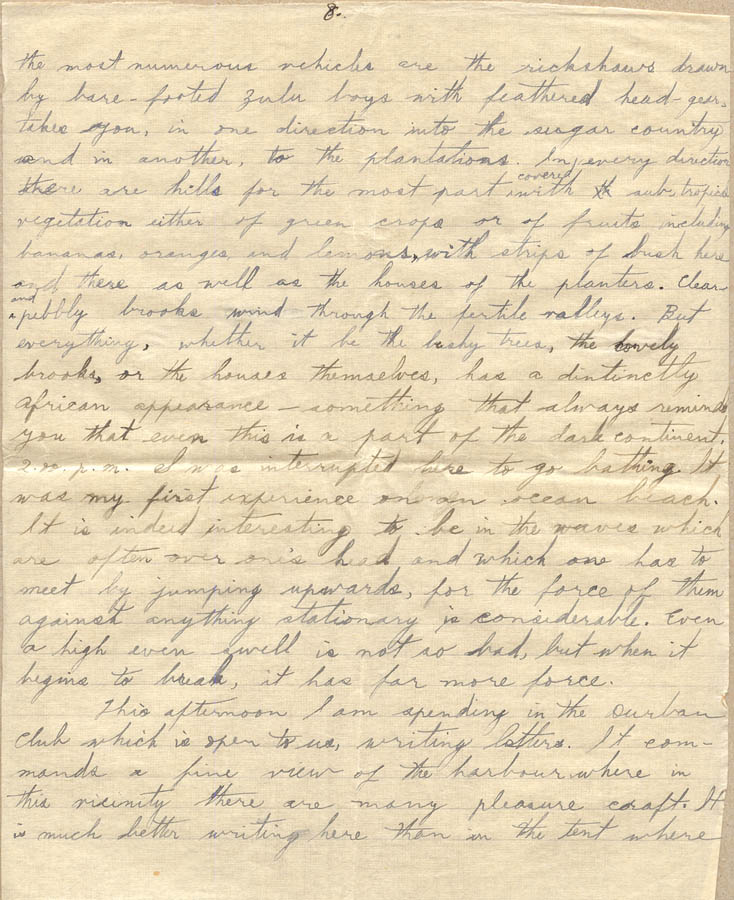 8.
the most numerous vehicles are the rickshaws drawn
by bare-footed zulu boys with feathered head-gear,
takes you, in one direction into the sugar country
and in another, to the plantations. In every direction
there are hills for the most part covered with sub tropical
vegetation either of green crops or of fruits including
bananas, oranges, and lemons, with strips of bush here
and there as well as the houses of the planters. Clear-
and
pebbly brooks wind through the fertile valleys. But
everything, whether it be the bushy trees, the lovely
brooks, or the houses themselves, has a dintinctly
African appearance – something that always reminds
you that even this is a part of the dark continent.
2.00. p.m. I was interrupted here to go bathing. It
was my first experience on an ocean beach.
It is indeed interesting to be in the waves which
are often over one's head and which one has to
meet by jumping upwards, for the force of them
against anything stationary is considerable. Even
a high even swell is not so bad, but when it
begins to break, it has far more force.
This afternoon I am spending in the Durban
Club which is open to us, writing letters. It com-
mands a fine view of the harbour where in
this vicinity there are many pleasure craft. It
is much better writing here than in the tent where